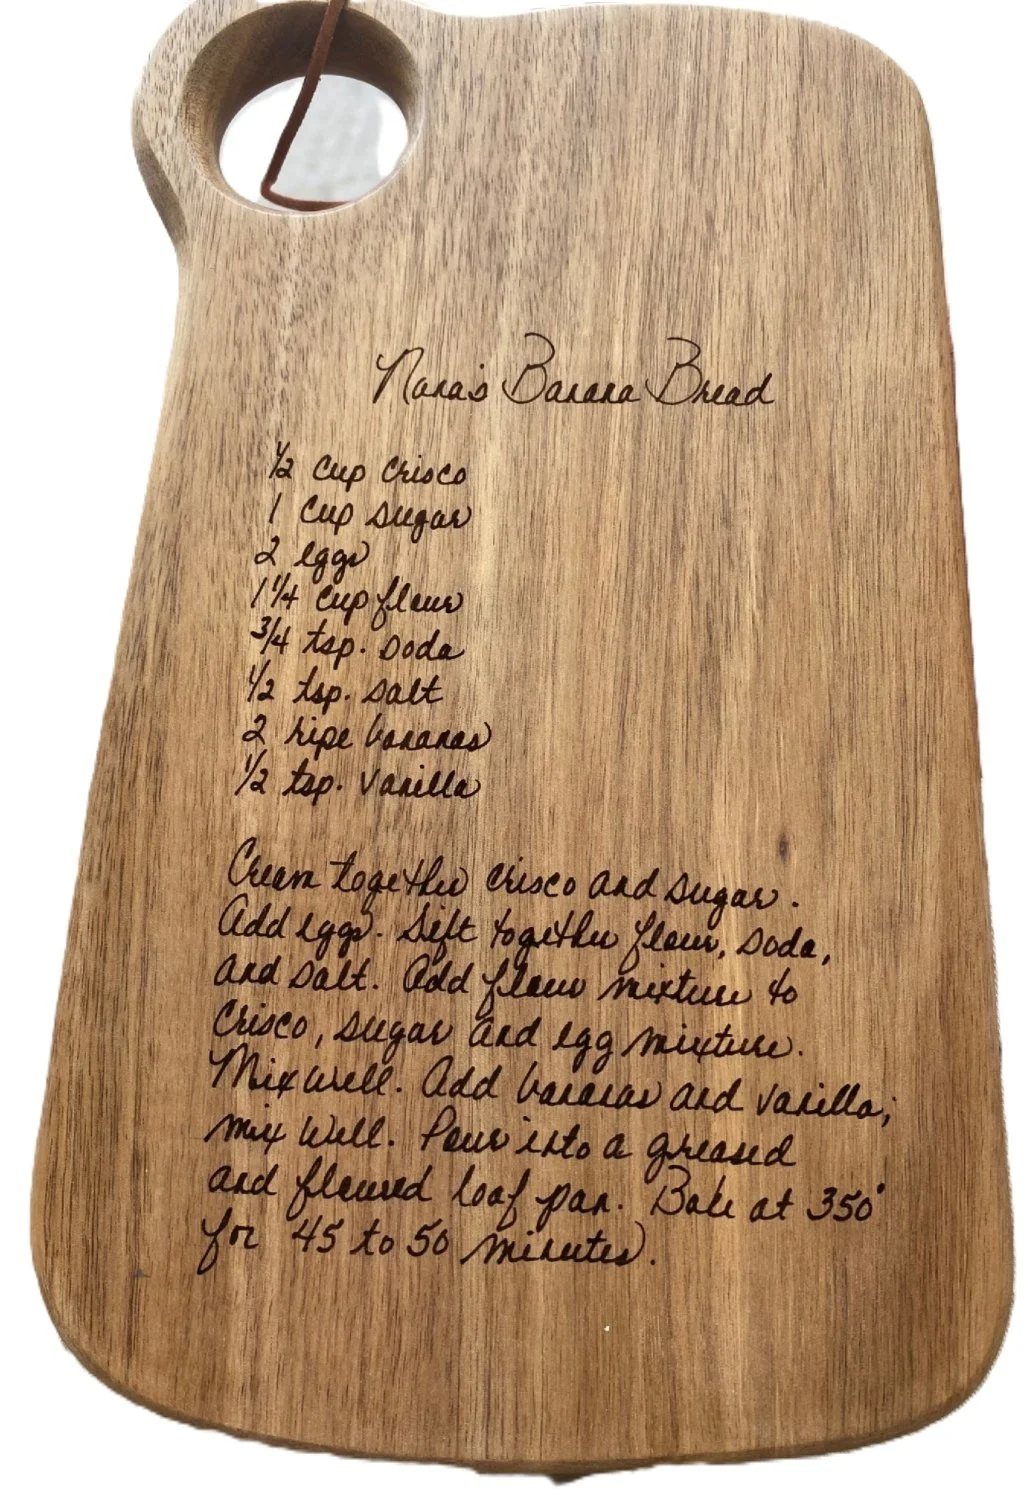 Nana's Banana Bread
1/2 cup crisco
1 cup sugar
2 eggs
1 1/4 cup flour
3/4 tsp. soda
1/2 tsp. salt
2 ripe bananas
1/2 tsp. vanilla
Cream together crisco and sugar.
Add eggs. Sift together flour, soda,
and salt. Add flour mixture to
crisco, sugar and egg mixture.
Mix well. Add bananas and vanilla;
mix well. Pour into a greased
and floured loaf pan. Bake at 350°
for 45 to 50 minutes.